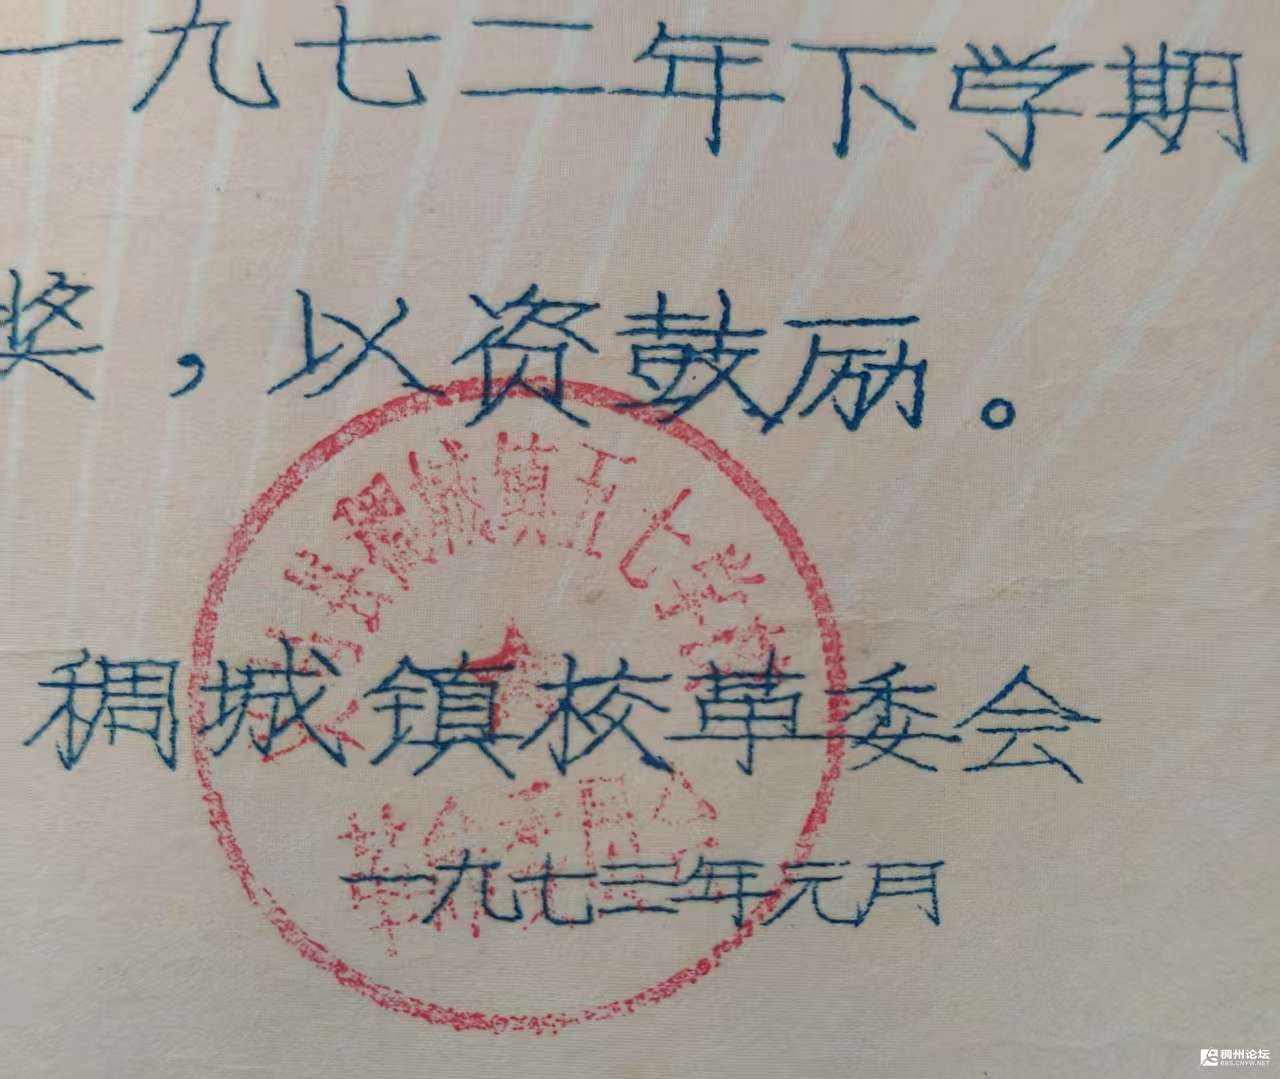 一九七二年下学期
奖，以资鼓励。
义乌县稠城镇五七学校
革命委员会
稠城镇校革委会
一九七三年元月
稠州论坛
BBS.CNYW.NET